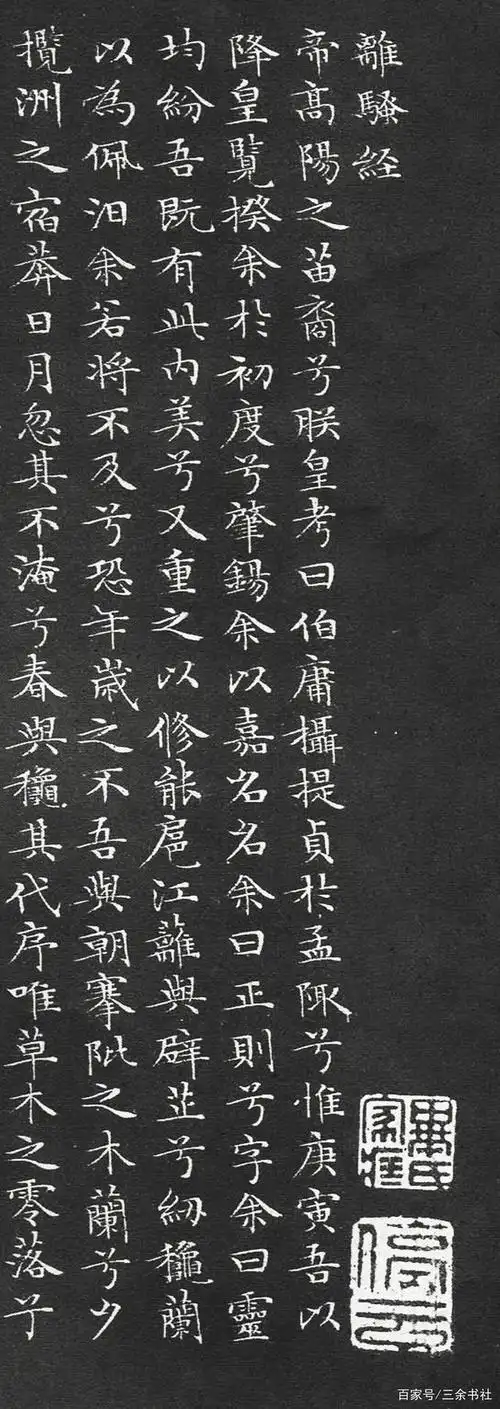 離騷経
帝高陽之苗裔兮朕皇考曰伯庸攝提貞於孟陬兮惟庚寅吾以
降皇覽揆余於初度兮肇錫余以嘉名名余曰正則兮字余曰靈
均紛吾既有此内美兮又重之以修能扈江蘺與辟芷兮紉龝蘭
以為佩汩余若将不及兮恐年歲之不吾與朝搴阰之木蘭兮夕
攬洲之宿莽日月忽其不淹兮春與龝其代序唯草木之零落兮
停云
百家号/三余书社